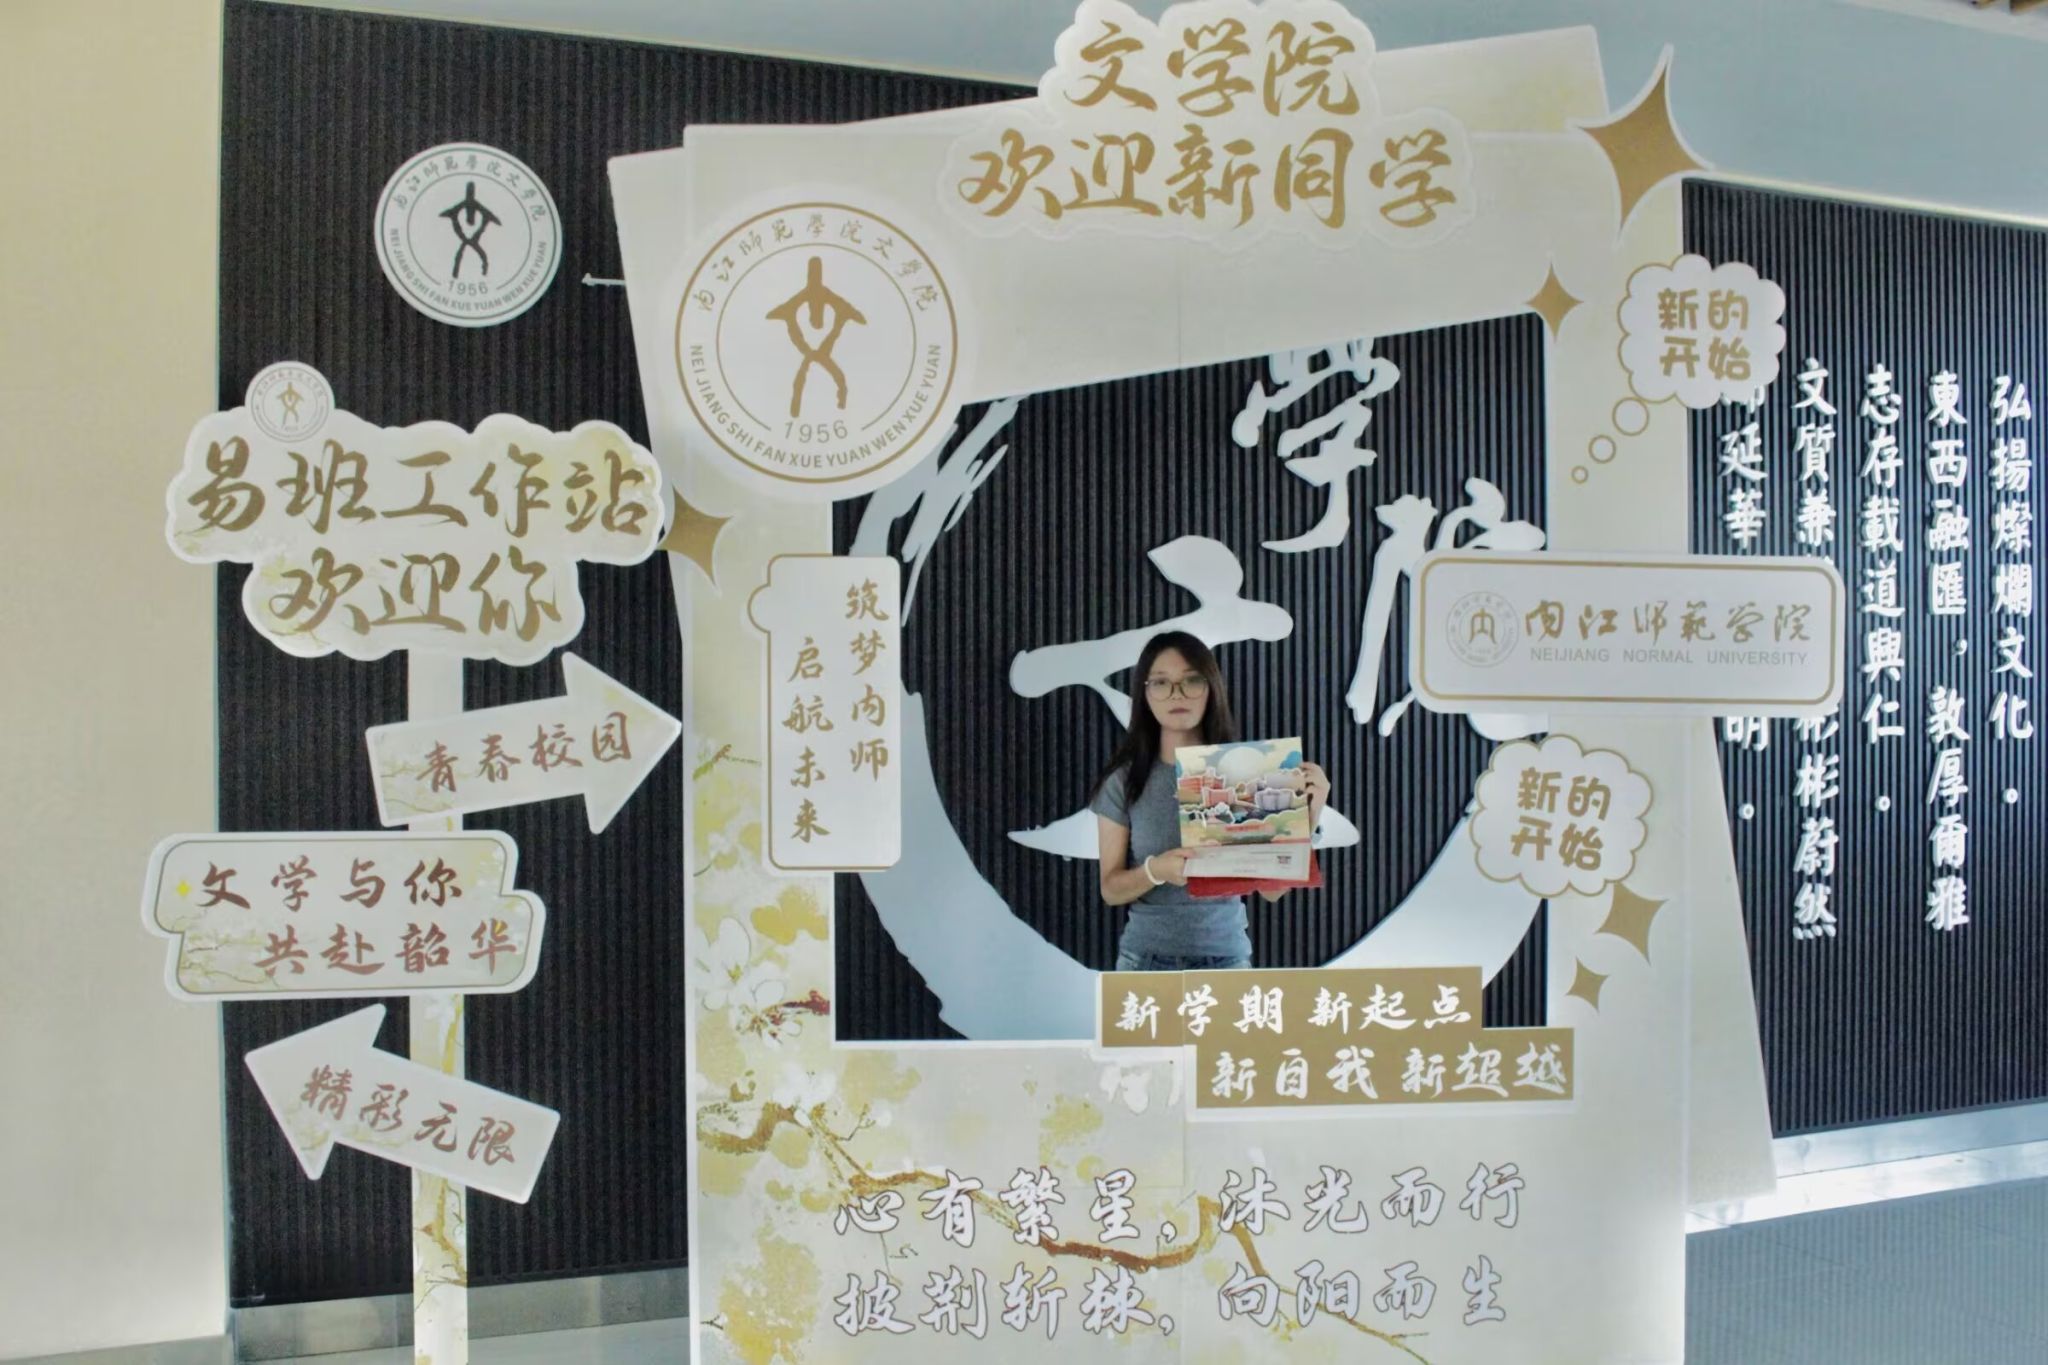 文学院
欢迎新同学
内江師範學院文學院
NEI JIANG SHI FAN XUE YUAN WEN XUE YUAN
1956
内江師範學院文學院
NEI JIANG SHI FAN XUE YUAN WEN XUE YUAN
1956
易班工作站
欢迎你
青春校园
文学与你
共赴韶华
精彩无限
筑梦内师
启航未来
學
文
院
新的
开始
内江师范学院
NEIJIANG NORMAL UNIVERSITY
新的
开始
弘揚燦爛文化。
東西融匯，敦厚爾雅
志存載道興仁。
文質兼 彬彬蔚然
延華 明。
新学期 新起点
新自我 新超越
心有繁星，沐光而行
披荆斩棘，向阳而生